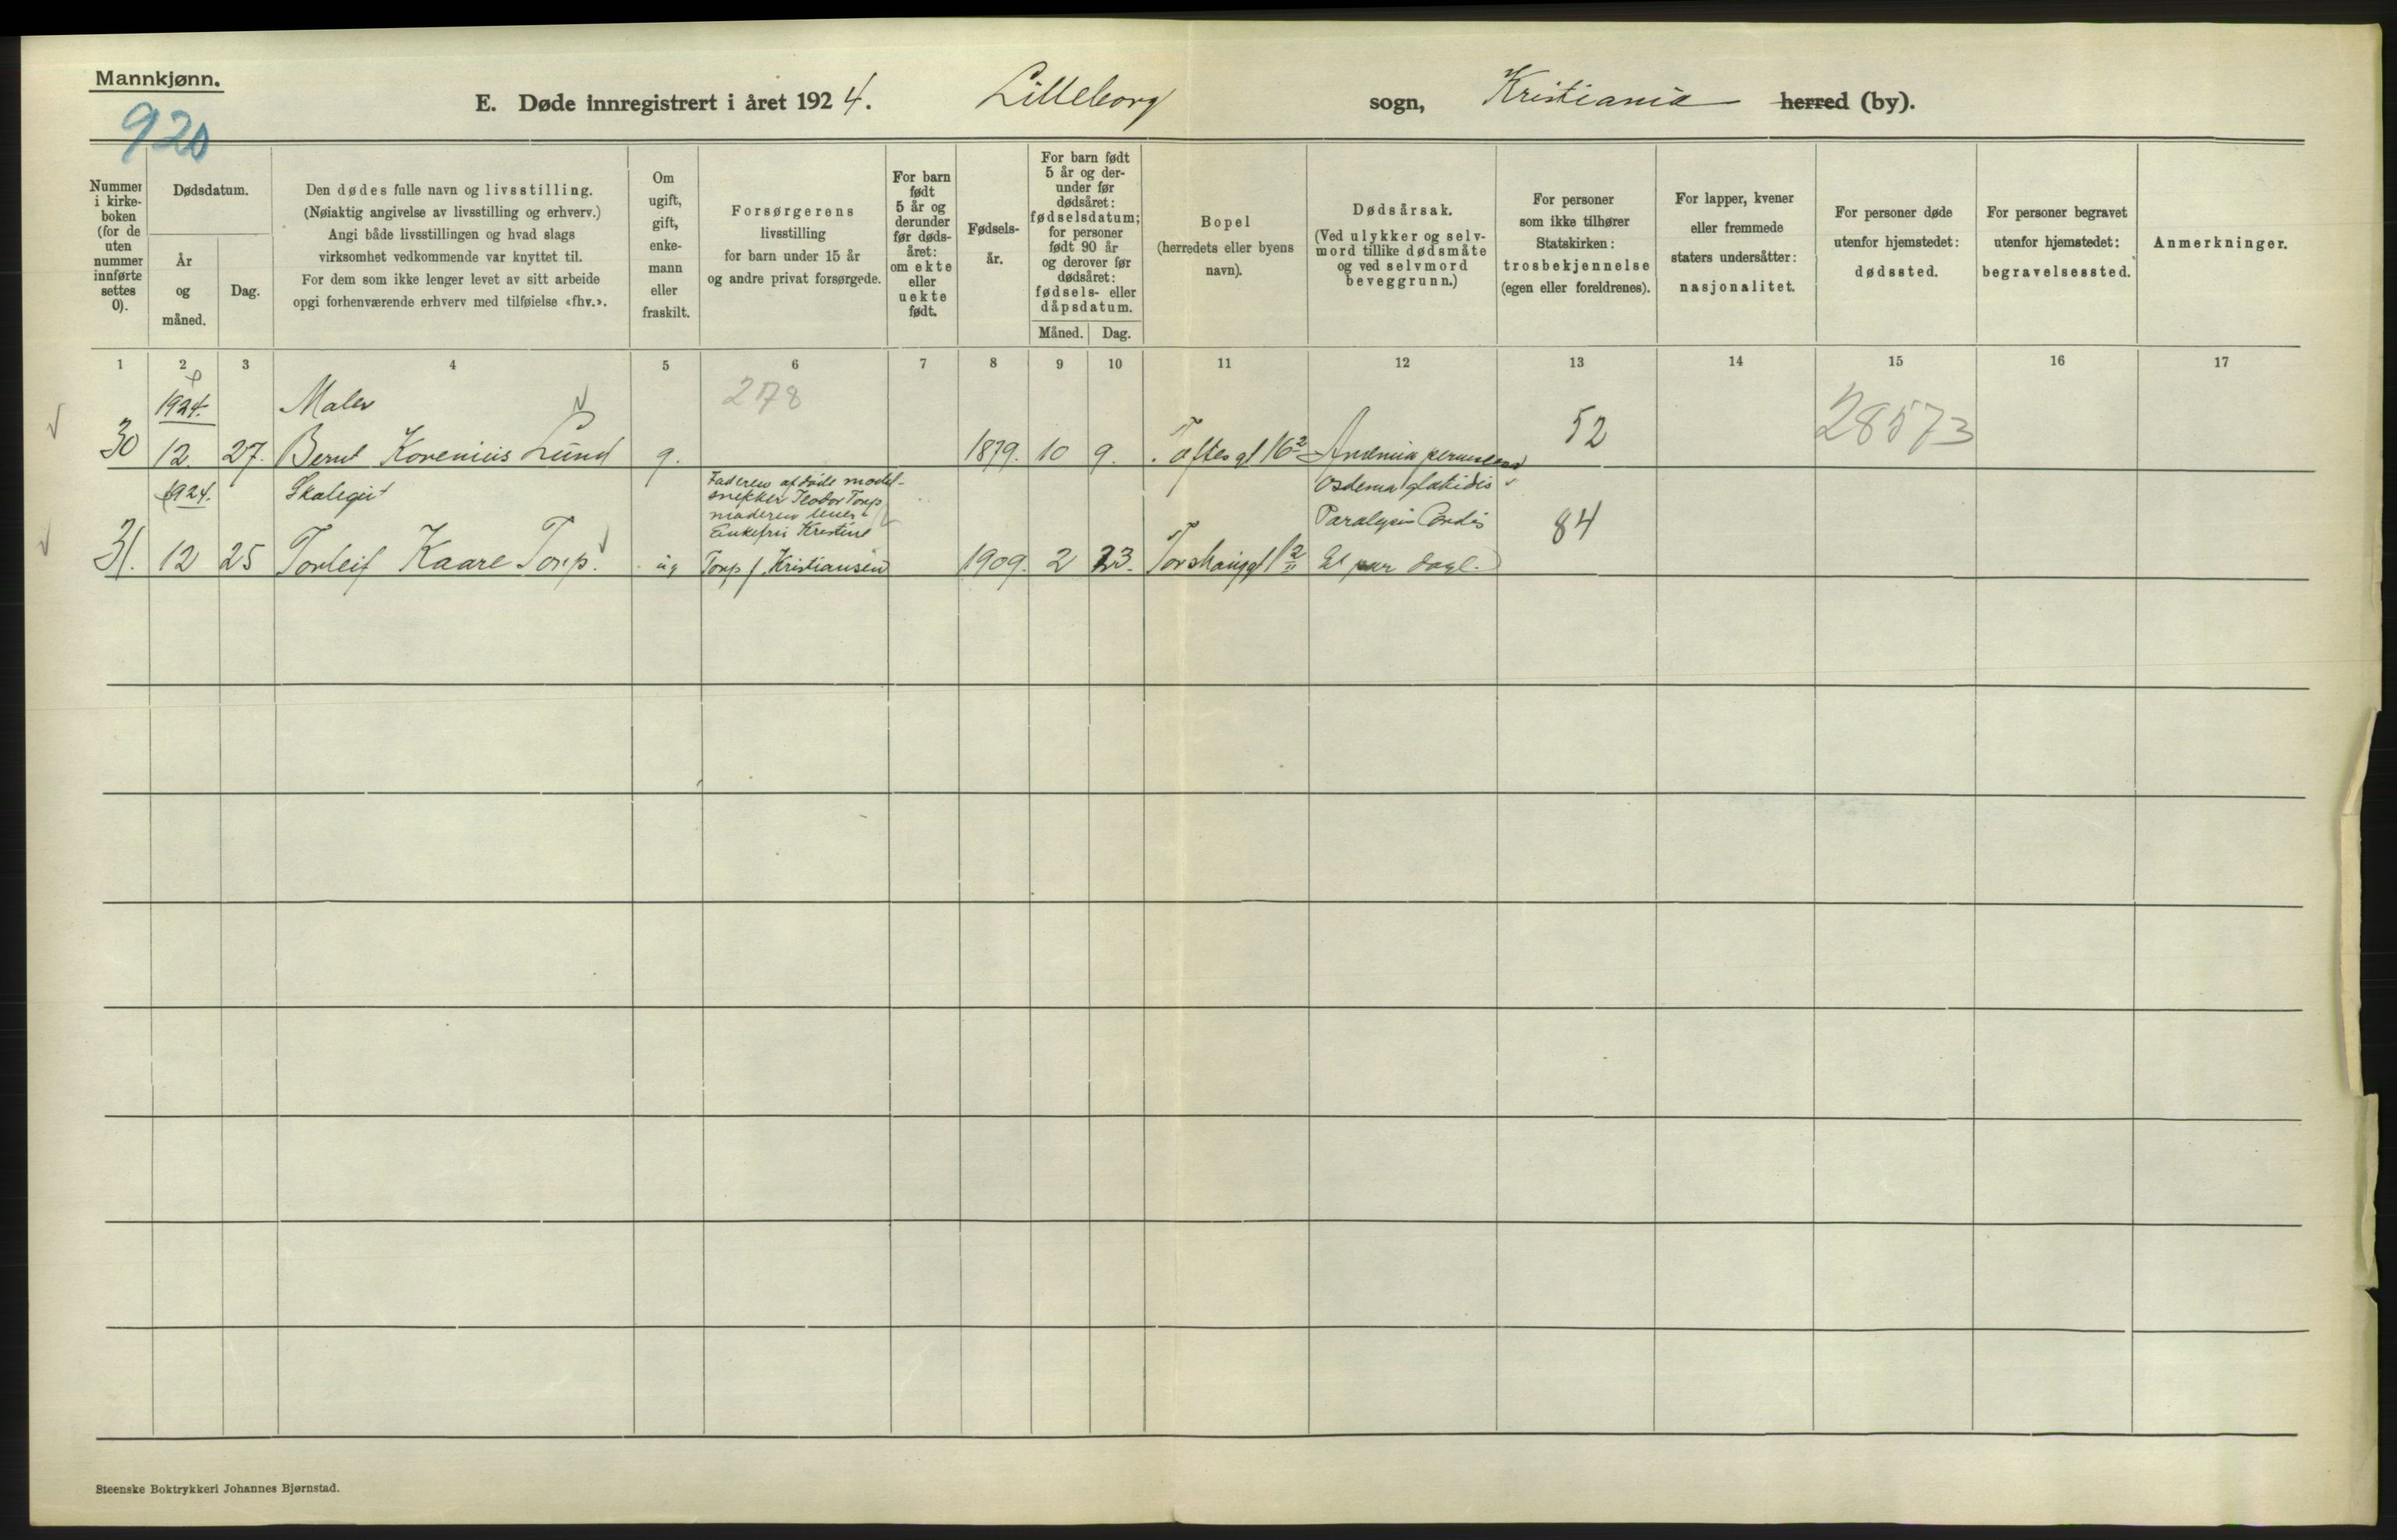 Mannkjønn.
920
E. Døde innregistrert i året 1924. Lilleborg sogn, Kristiania herred (by).
Nummer i kirke- boken (for de uten nummer innførte settes 0).
Dødsdatum.
År og måned.
Dag.
Den dødes fulle navn og livsstilling.
(Nøiaktig angivelse av livsstilling og erhverv.)
Angi både livsstillingen og hvad slags
virksomhet vedkommende var knyttet til.
For dem som ikke lenger levet av sitt arbeide
opgi forhenværende erhverv med tilføielse «fhv.».
Om ugift, gift, enke- mann eller fraskilt.
Forsørgerens
livsstilling
for barn under 15 år
og andre privat forsørgede.
For barn født 5 år og derunder før døds- året: om ekte eller uekte født.
Fødsels- år.
For barn født 5 år og der- under før dødsåret: fødselsdatum; for personer født 90 år og derover før dødsåret: fødsels- eller dåpsdatum.
Måned. Dag.
Bopel
(herredets eller byens
navn).
Dødsårsak.
(Ved ulykker og selv-
mord tillike dødsmåte
og ved selvmord
beveggrunn.)
For personer
som ikke tilhører
Statskirken:
trosbekjennelse
(egen eller foreldrenes).
For lapper, kvener
eller fremmede
staters undersåtter:
nasjonalitet.
For personer døde
utenfor hjemstedet:
dødssted.
For personer begravet
utenfor hjemstedet:
begravelsessted.
Anmerkninger.
1 2 3 4 5 6 7 8 9 10 11 12 13 14 15 16 17
1924. Maler 278 28573
30 12. 27. Bernt Lund g. 1879. 10 9. Toftesgt 16 2 52
1924. Skolegut
Faderen afdøde model-
snekker Teodor Torp
moderen
Enkefru Kristine
Torp f. Kristiansen
31. 12 25 Torleif Kaare Torp. ug 1909. 2 23. 84
Oedema glottidis
Paralysis Cordis
Et par dage.
Steenske Boktrykkeri Johannes Bjørnstad.